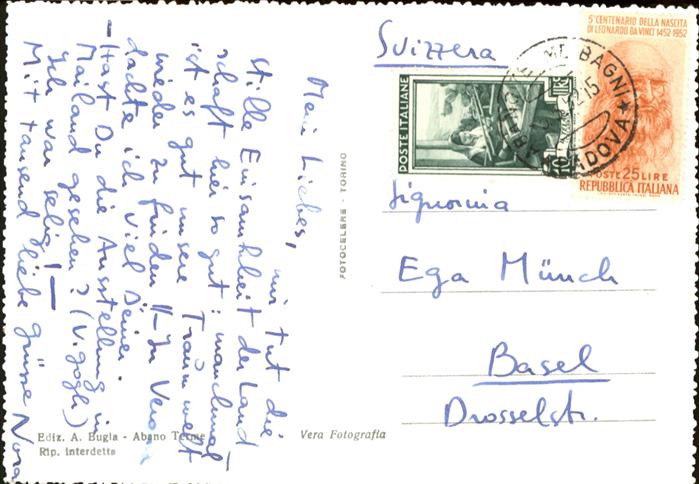 Mein Liebes,
mir tut die
stille Einsamkeit der Land
schaft hier so gut; manchmal
ist es gut unsere Traumwelt
wieder zu finden !! – In Verona
dachte ich viel Deiner.
– Hast Du die Ausstellung in
Mailand gesehen? (V. gogh)
Ich war selig! –
Mit tausend liebe Grüsse Nora
Ediz. A. Bugia - Abano Terme
Rip. interdetta
Vera Fotografia
FOTOCELERE - TORINO
Svizzera
POSTE ITALIANE
5° CENTENARIO DELLA NASCITA
DI LEONARDO DA VINCI 1452-1952
POSTE 25 LIRE
REPUBBLICA ITALIANA
BAGNI
Signorina
Ega Münch
Basel
Drosselstr.